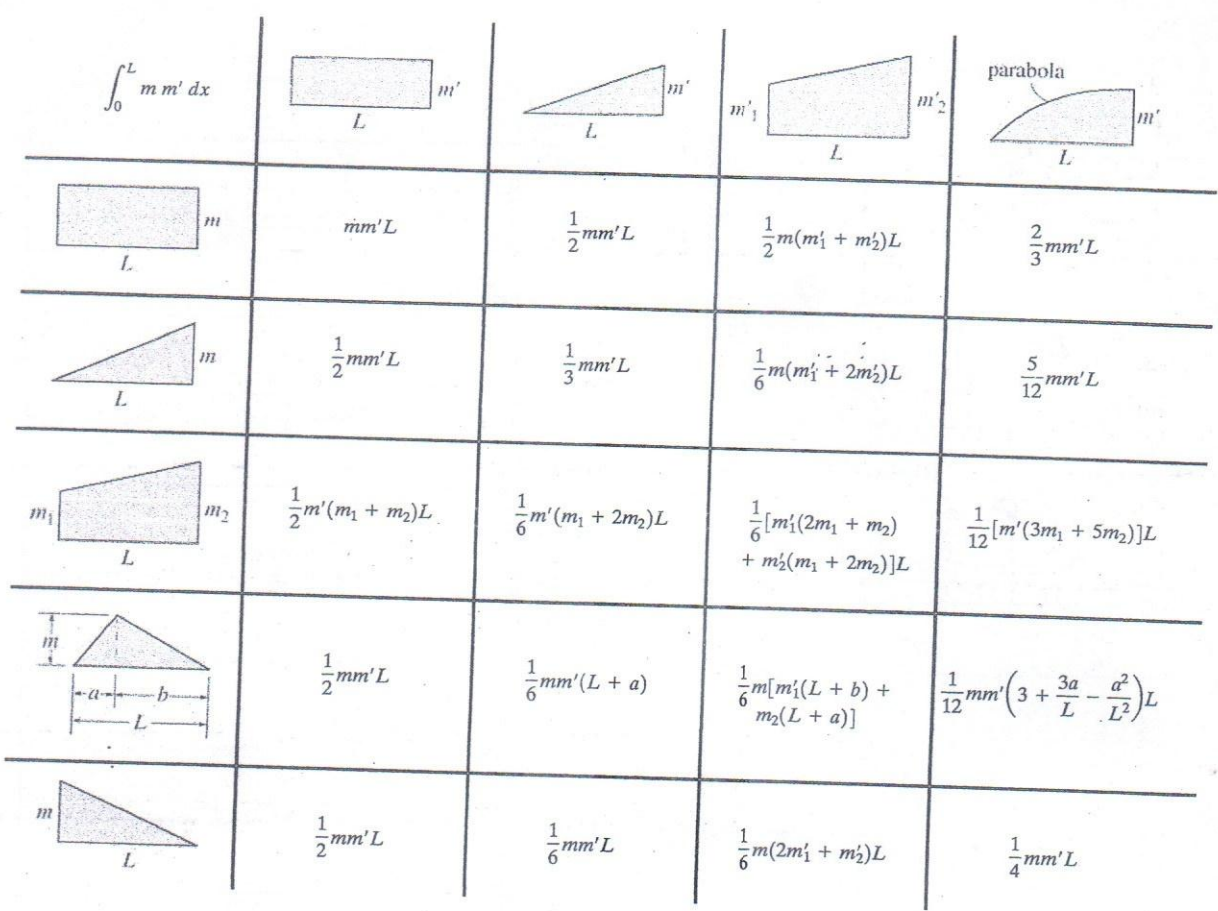 ∫₀ᴸ m m' dx
m'
L
m'
L
m'₁
m'₂
L
parabola
m'
L
m
L
mm'L
1/2 mm'L
1/2 m(m'₁ + m'₂)L
2/3 mm'L
m
L
1/2 mm'L
1/3 mm'L
1/6 m(m'₁ + 2m'₂)L
5/12 mm'L
m₁
m₂
L
1/2 m'(m₁ + m₂)L
1/6 m'(m₁ + 2m₂)L
1/6 [m'₁(2m₁ + m₂)
+ m'₂(m₁ + 2m₂)]L
1/12 [m'(3m₁ + 5m₂)]L
m
a
b
L
1/2 mm'L
1/6 mm'(L + a)
1/6 m[m'₁(L + b) +
m₂(L + a)]
1/12 mm'(3 + 3a/L − a²/L²)L
m
L
1/2 mm'L
1/6 mm'L
1/6 m(2m'₁ + m'₂)L
1/4 mm'L